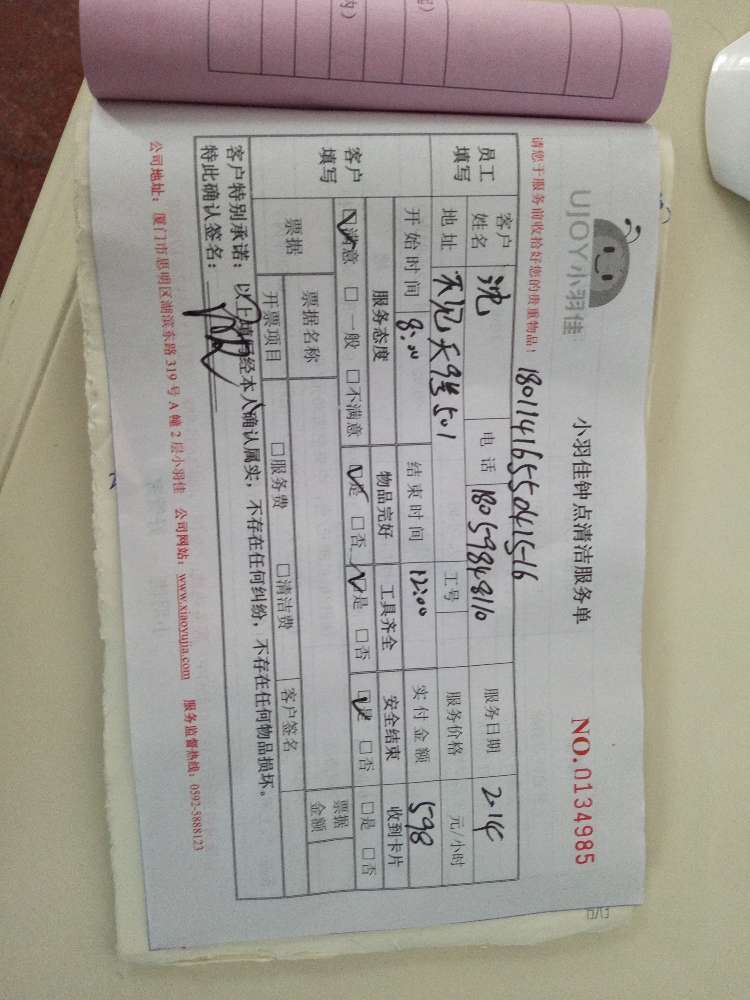 UJOY小羽佳
小羽佳钟点清洁服务单
NO.0134985
请您于服务前收拾好您的贵重物品！
18011416550415-16
员工填写 客户姓名 沈 电话 18059848110 服务日期 2.14
地址 501 工号 服务价格 元/小时
开始时间 8:00 结束时间 12:00 实付金额 598
客户填写 服务态度 物品完好 工具齐全 安全结束 收到卡片
☑满意 □一般 □不满意 ☑是 □否 ☑是 □否 ☑是 □否 □是 □否
票据 票据名称 票据金额
开票项目 □服务费 □清洁费 客户签名
客户特别承诺：以上填写经本人确认属实，不存在任何纠纷，不存在任何物品损坏。
特此确认签名：
公司地址：厦门市思明区湖滨东路319号A幢2层小羽佳 公司网站：www.xiaoyujia.com 服务监督热线：0592-5888123